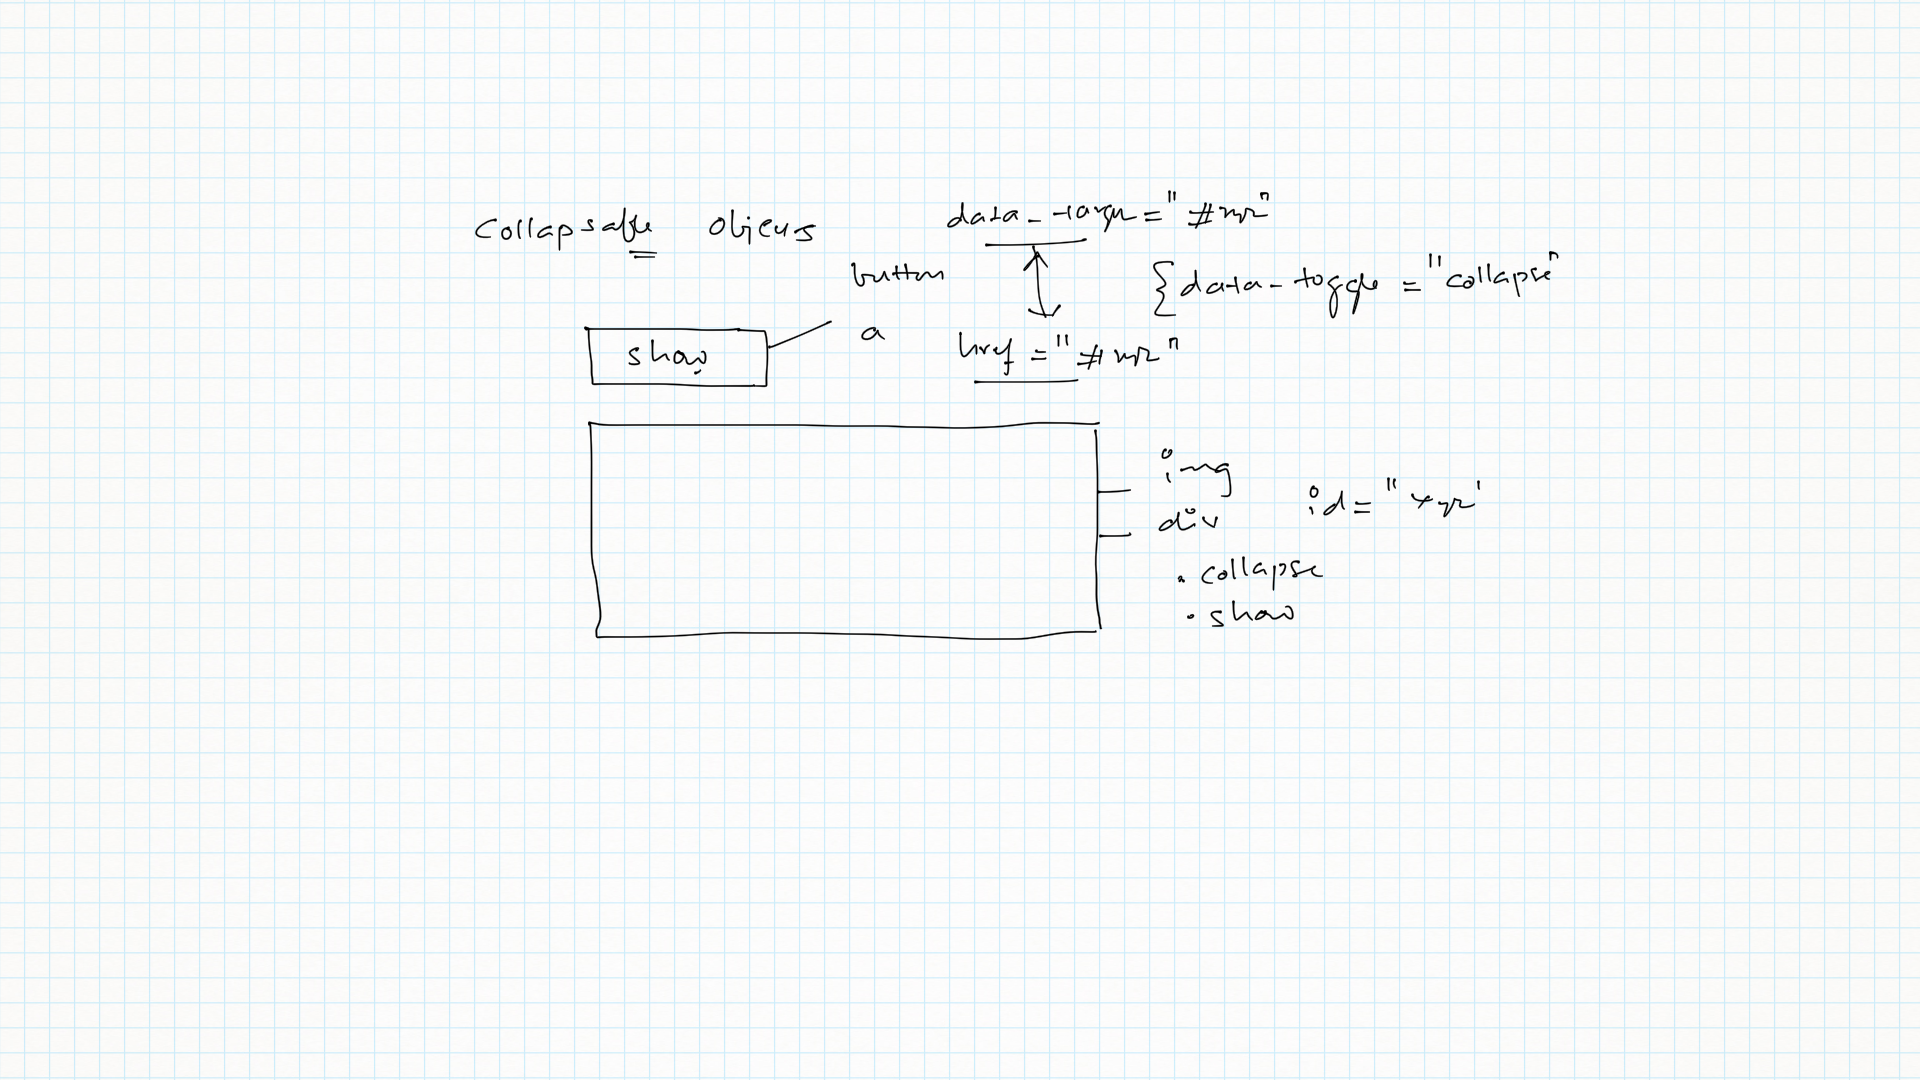 Collapsable Objects
data-target="#xyz"
button
{data-toggle="collapse"
a
href="#xyz"
show
img
div
id="xyz"
.collapse
.show